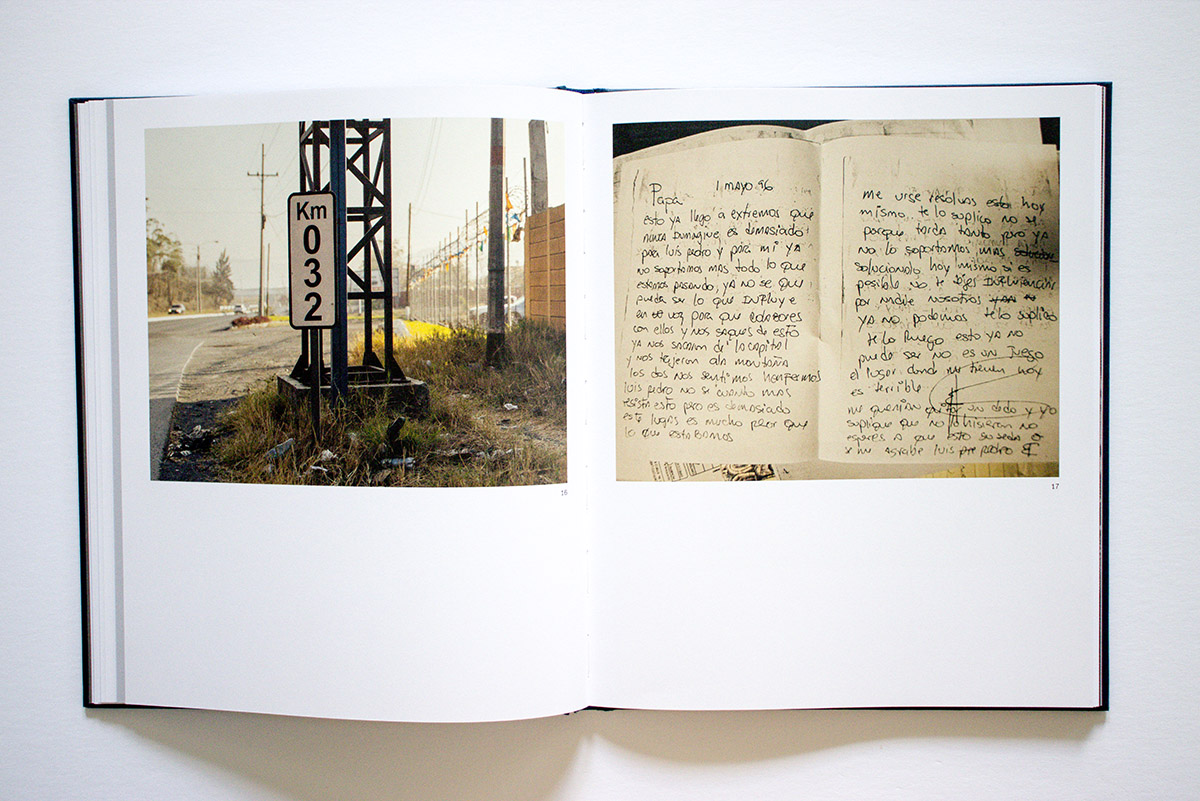 Km
0
3
2
16
Papá 1 MAYO 96
esto ya llego a extremos que
nunca imagine es demasiado
para luis pedro y para mi ya
no soportamos mas todo lo que
estamos pasando, ya no se que
pueda ser lo que influye
en voz para que colabores
con ellos y nos saques de esto
ya nos sacaron de la capital
y nos trajeron ala montaña
los dos nos sentimos
luis pedro no se cuanto mas
esto pero es demasiado
este lugar es mucho peor que
lo que estabamos
me urge resolvas esto hoy
mismo, te lo suplico no se
porque tarda tanto pero ya
no lo soportamos mas
solucionalo hoy mismo si es
posible no te dejes
por nadie nosotros
ya no podemos te lo suplico
te lo ruego esto ya no
puede ser no es un juego
el lugar donde me tienen hoy
es terrible
me querian quitar un dedo y yo
suplique que no lo hisieran no
esperes a que esto suceda o
se me luis pedro
17